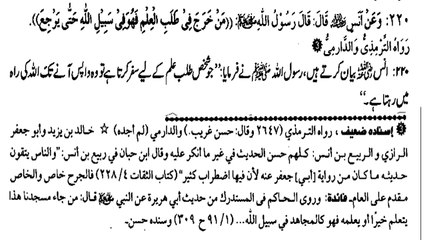 ۲۲۰: وَعَنْ أَنَسٍ ؓ قَالَ: قَالَ رَسُوْلُ اللّٰهِ ﷺ: ((مَنْ خَرَجَ فِيْ طَلَبِ الْعِلْمِ فَهُوَ فِيْ سَبِيْلِ اللّٰهِ حَتّٰى يَرْجِعَ)).
رَوَاهُ التِّرْمِذِيُّ وَالدَّارِمِيُّ
۲۲۰: انس ؓ بیان کرتے ہیں، رسول اللہ ﷺ نے فرمایا: ”جو شخص طلب علم کے لیے سفر کرتا ہے تو وہ واپس آنے تک اللہ کی راہ
میں رہتا ہے۔“
إسناده ضعيف، رواه الترمذي (٢٦٤٧ وقال: حسن غريب.) والدارمي (لم أجده) ☆ خالد بن يزيد وأبو جعفر
الرازي و الربيع بن أنس: كلهم حسن الحديث في غير ما أنكر عليه وقال ابن حبان في ربيع بن أنس: "والناس يتقون
حديثه ما كان من رواية [أبي] جعفر عنه لأن فيها اضطراب كثير" (كتاب الثقات ٢٢٨/٤) فالجرح خاص والخاص
مقدم على العام. فائدة: وروى الحاكم في المستدرك من حديث أبي هريرة عن النبي ﷺ قال: من جاء مسجدنا هذا
يتعلم خيرًا أو يعلمه فهو كالمجاهد في سبيل الله... (٩١/١ ح ٣٠٩) وسنده حسن.